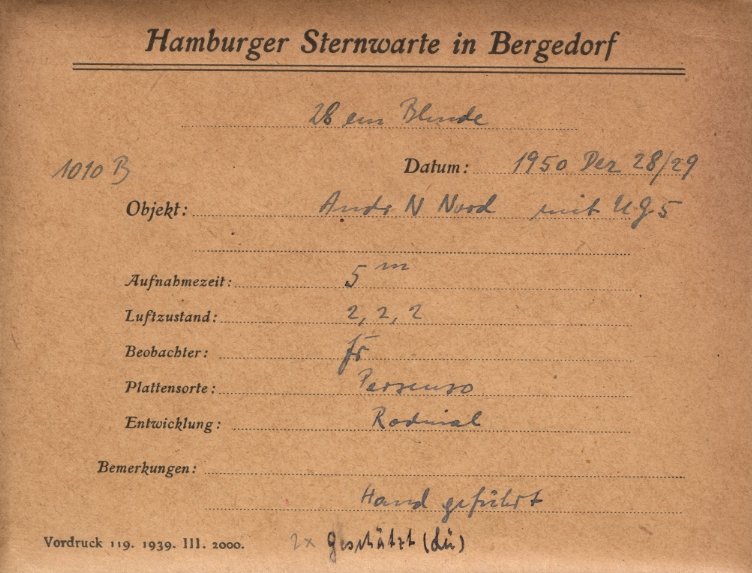 Hamburger Sternwarte in Bergedorf
28 cm Blende
1010 B
Datum: 1950 Dez 28/29
Objekt: Andr N Nord mit UG5
Aufnahmezeit: 5 m
Luftzustand: 2, 2, 2
Beobachter:
Plattensorte: Persenso
Entwicklung: Rodinal
Bemerkungen:
Hand geführt
Vordruck 119. 1939. III. 2000.
2x geschätzt (Lü)